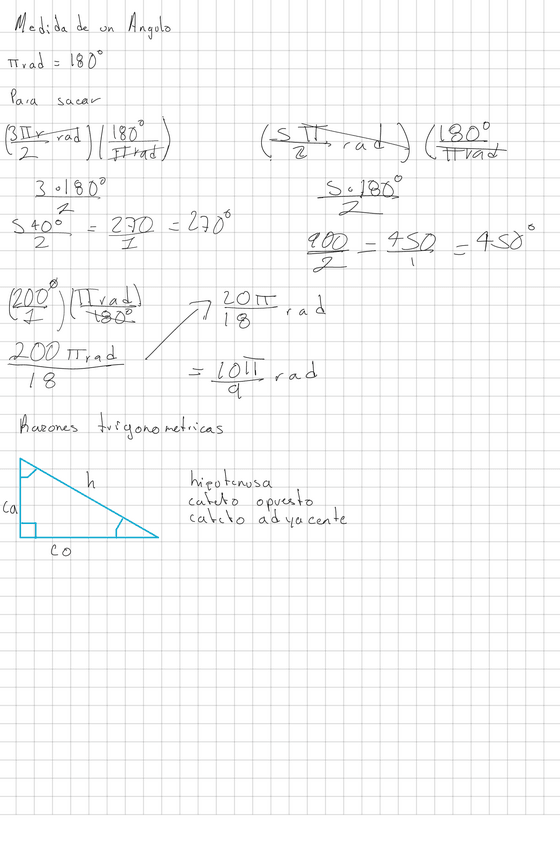 Medida de un Angulo
πrad = 180°
Para sacar
(3πr rad / 2)(180° / πrad)
3•180° / 2
540° / 2 = 270 / 1 = 270°
(5π / 2 rad)(180° / πrad)
5•180° / 2
900 / 2 = 450 / 1 = 450°
(200° / 1)(πrad / 180°)
200 πrad / 18
20π / 18 rad
= 10π / 9 rad
Razones trigonometricas
h
ca
co
hipotenusa
cateto opuesto
cateto adyacente